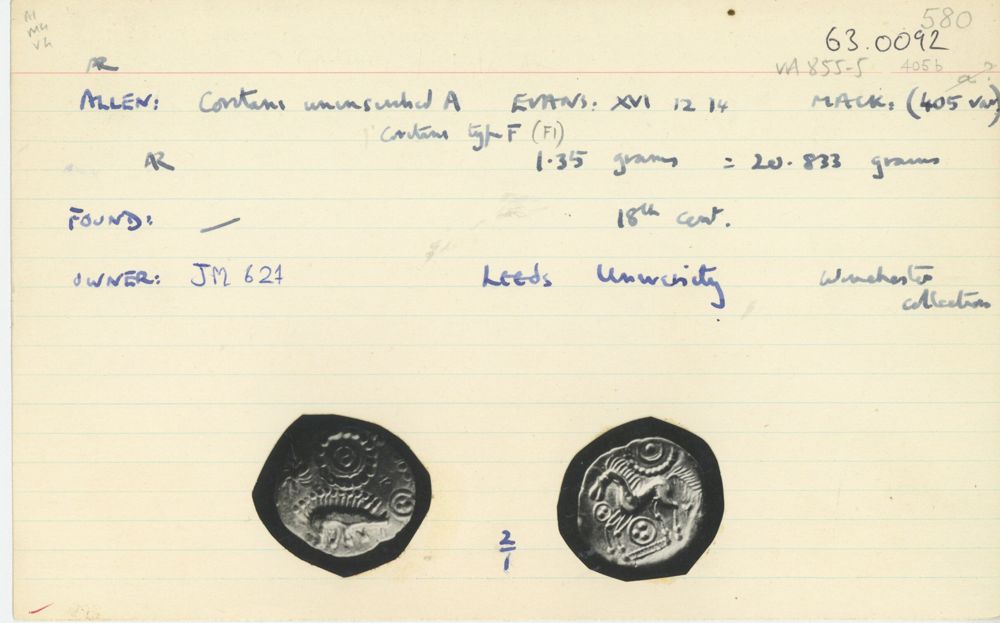 A1
M4
V4
580
63.0092
AR
VA 855-5 405b
a?
ALLEN: Coritani uninscribed A EVANS: XVI 12 14 MACK: (405 var)
Coritani type F (F1)
AR 1.35 grams = 20.833 grains
FOUND: — 18th cent.
OWNER: JM 627 LEEDS University Winchester
collection
2/1